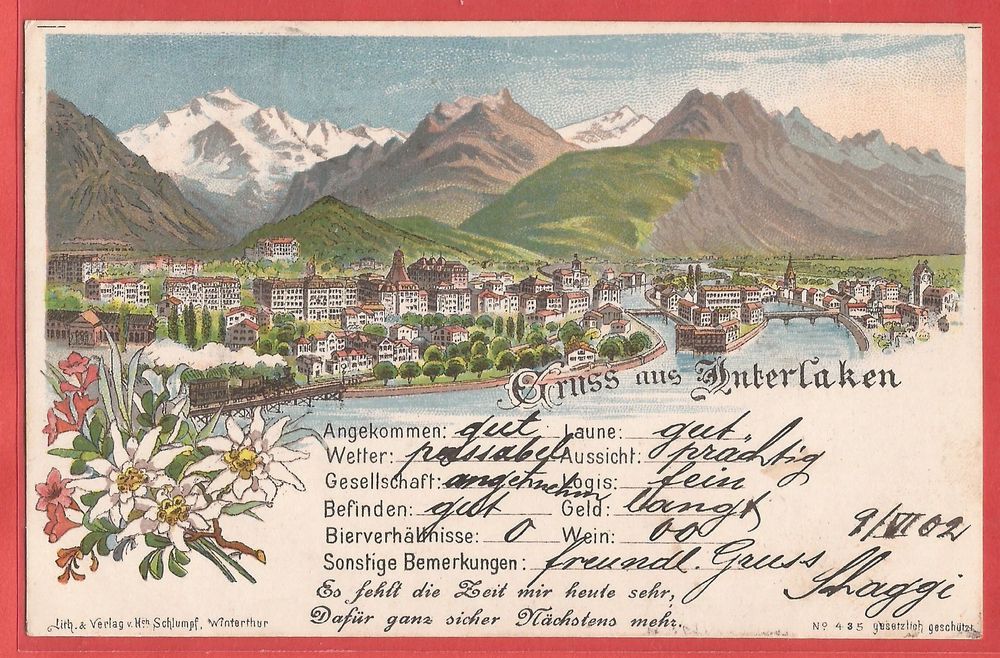 Gruss aus Interlaken
Angekommen: gut Laune: gut.
Wetter: passabel Aussicht: prächtig
Gesellschaft: angenehm Logis: fein
Befinden: gut Geld: langt
Bierverhältnisse: 0 Wein: 00
9/VI 02
Sonstige Bemerkungen: freundl. Gruss
Es fehlt die Zeit mir heute sehr,
Dafür ganz sicher Nächstens mehr.
Lith. & Verlag v. Hch Schlumpf, Winterthur
No 435 gesetzlich geschützt.